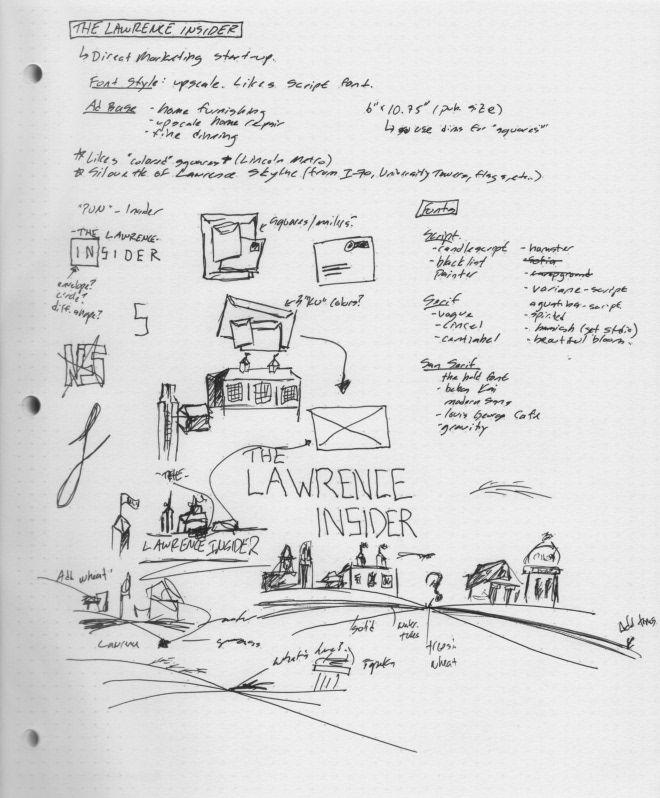 THE LAWRENCE INSIDER
↳ Direct Marketing start-up.
Font Style: upscale. Likes script font.
Ad Base - home furnishing
- upscale home repair
- fine dinning
6" x 10.75" (pub. size)
↳ use dims for "squares"
* Likes "colored" squares * (Lincoln Metro)
* Silouette of Lawrence Skyline (from I-70, University Towers, flags, etc..)
"PUN" - Insider
- THE LAWRENCE -
INSIDER
envelope?
circle?
diff. shape?
squares/mailers?
3 "KU" colors?
Fonts
Script
- candlescript
- blacklist
painter
- hamster
- sofia
- campground
- variane-script
aguatiba-script
- spirited
- hamish (get studio)
- beautiful bloom
Serif
- vogue
- cincel
San Serif
the bold font
modern sans
- louis George Cafe
- gravity
S
- THE -
LAWRENCE INSIDER
THE
LAWRENCE
INSIDER
Add wheat?
Solid
trees?
wheat
Add trees
what's here?
Topeka